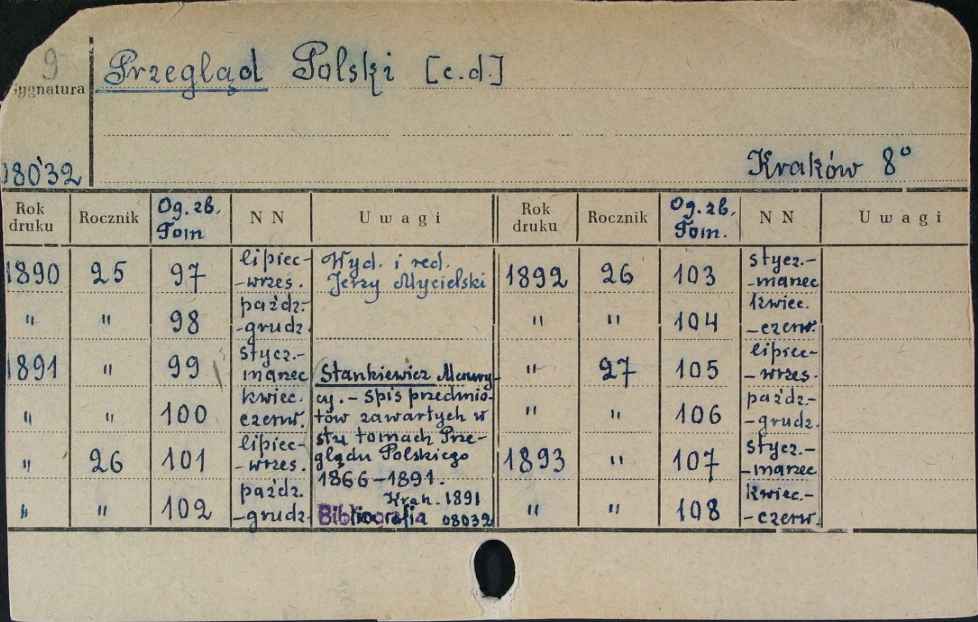 9
Sygnatura
Przegląd Polski [c.d.]
08032
Kraków 8°
Rok druku | Rocznik | Og. zb. Tom | NN | Uwagi | Rok druku | Rocznik | Og. zb. Tom. | NN | Uwagi
1890 | 25 | 97 | lipiec- -wrzes. | Wyd. i red. Jerzy Mycielski | 1892 | 26 | 103 | stycz.- -marzec
" | " | 98 | paźdz.- -grudz. | | " | " | 104 | kwiec. -czerw.
1891 | " | 99 | stycz.- marzec | Stankiewicz Maury- | " | 27 | 105 | lipiec- -wrzes.
" | " | 100 | kwiec. czerw. | cy. - Spis przedmio- tów zawartych w | " | " | 106 | paźdz.- -grudz.
" | 26 | 101 | lipiec- -wrzes. | stu tomach Prze- glądu Polskiego | 1893 | " | 107 | stycz.- -marzec
" | " | 102 | paźdz. -grudz. | 1866-1891. Krak. 1891 Bibliografia 08032 | " | " | 108 | kwiec.- -czerw.